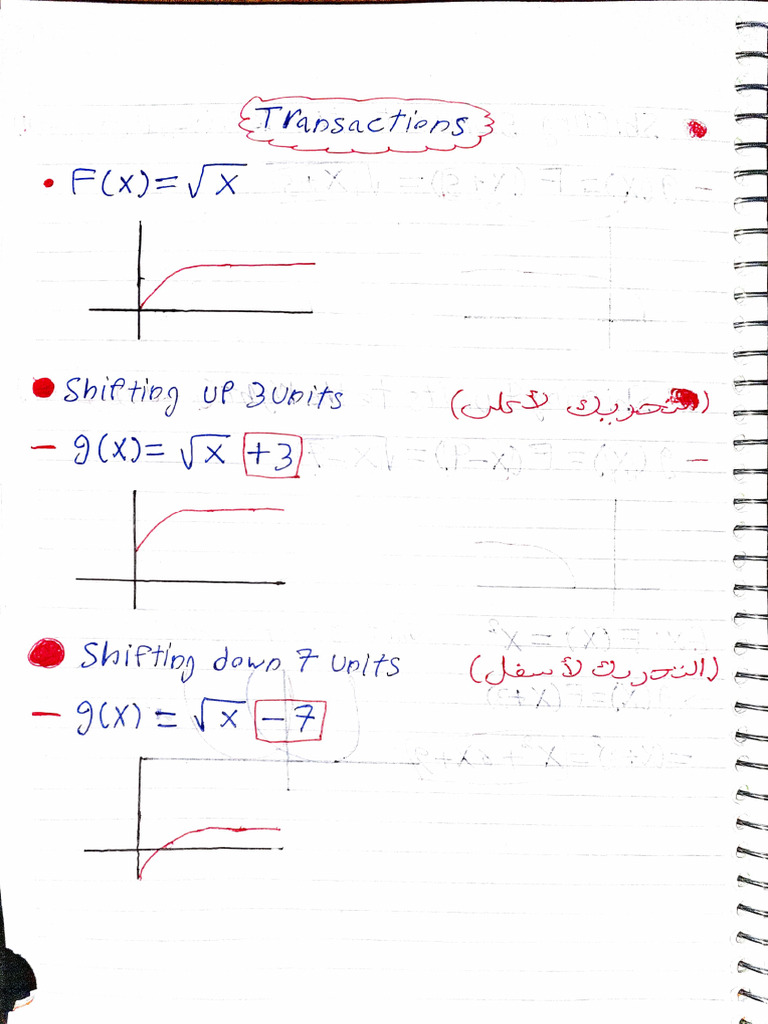 Transactions
• F(x) = √x
• Shifting up 3 units (التحريك لأعلى)
- g(x) = √x +3
• Shifting down 7 units (التحريك لأسفل)
- g(x) = √x - 7